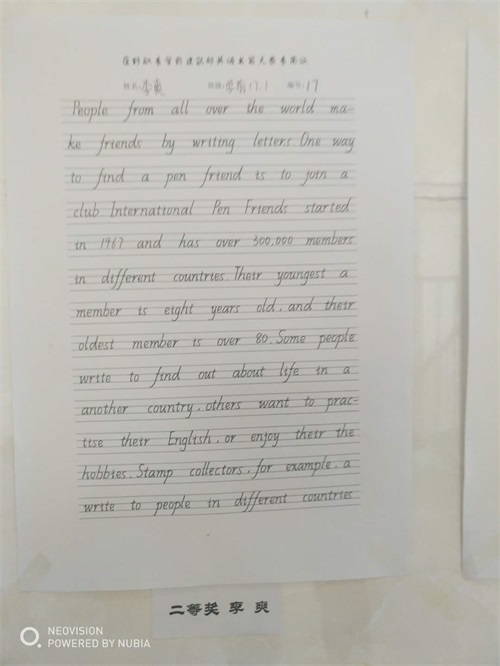 巨野职素学前建筑部英语书写大赛专属纸
姓名:李爽 班级:学前17.1 编号:17
People from all over the world ma-
ke friends by writing letters. One way
to find a pen friend is to join a
club International Pen Friends started
in 1967 and has over 300,000 members
in different countries. Their youngest a
member is eight years old, and their
oldest member is over 80. Some people
write to find out about life in a
another country, others want to prac-
tise their English, or enjoy their the
hobbies. Stamp collectors, for example, a
write to people in different countries
二等奖 李 爽
NEOVISION
POWERED BY NUBIA